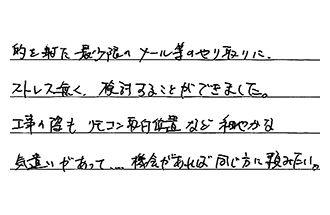 的を射た最小限のメール等のやり取りに、
ストレス無く、検討することができました。
工事の際も リモコン配置など 細やかな
気遣いがあって.... 機会があれば同じ方に頼みたい。